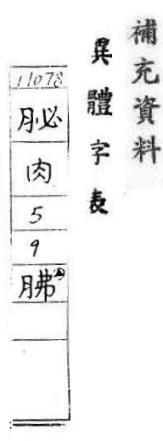 補充資料
異體字表
11078
䏟
肉
5
9
胇